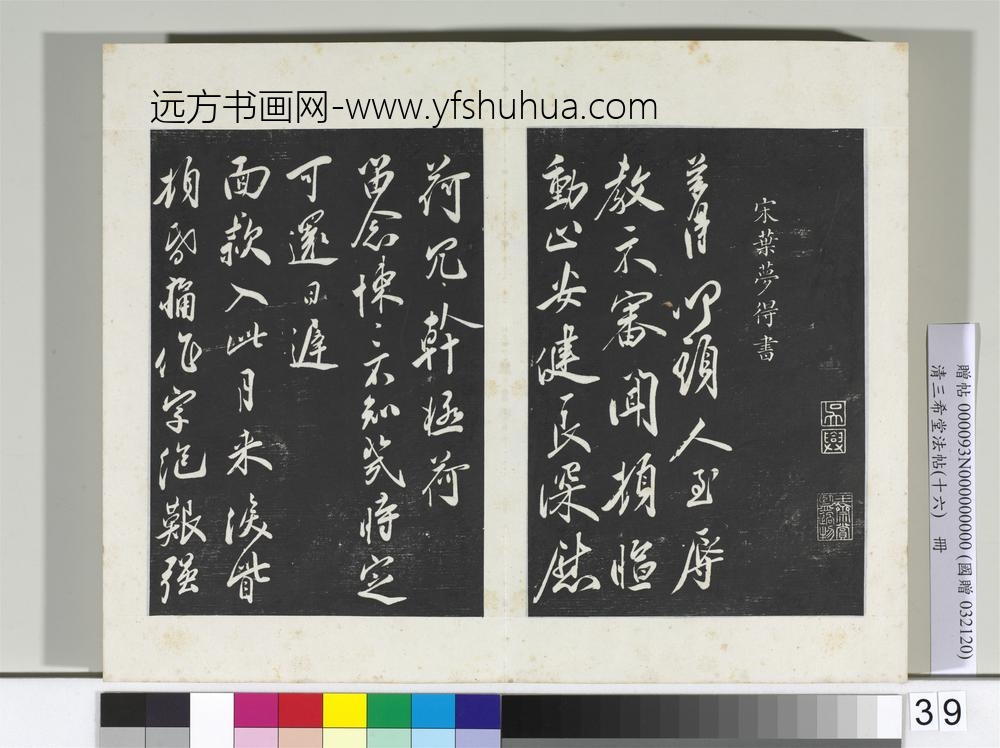 远方书画网-www.yfshuhua.com
宋葉夢得書
夢得叩頭人至辱
教示審聞頓
動止安健良深慰
荷冗幹極荷
留念悚悚示知幾時定
可還日遲
面款入此月来
頓昏痛作字艱强
贈帖 000093N000000000 (國贈 032120)
清三希堂法帖(十六) 冊
39